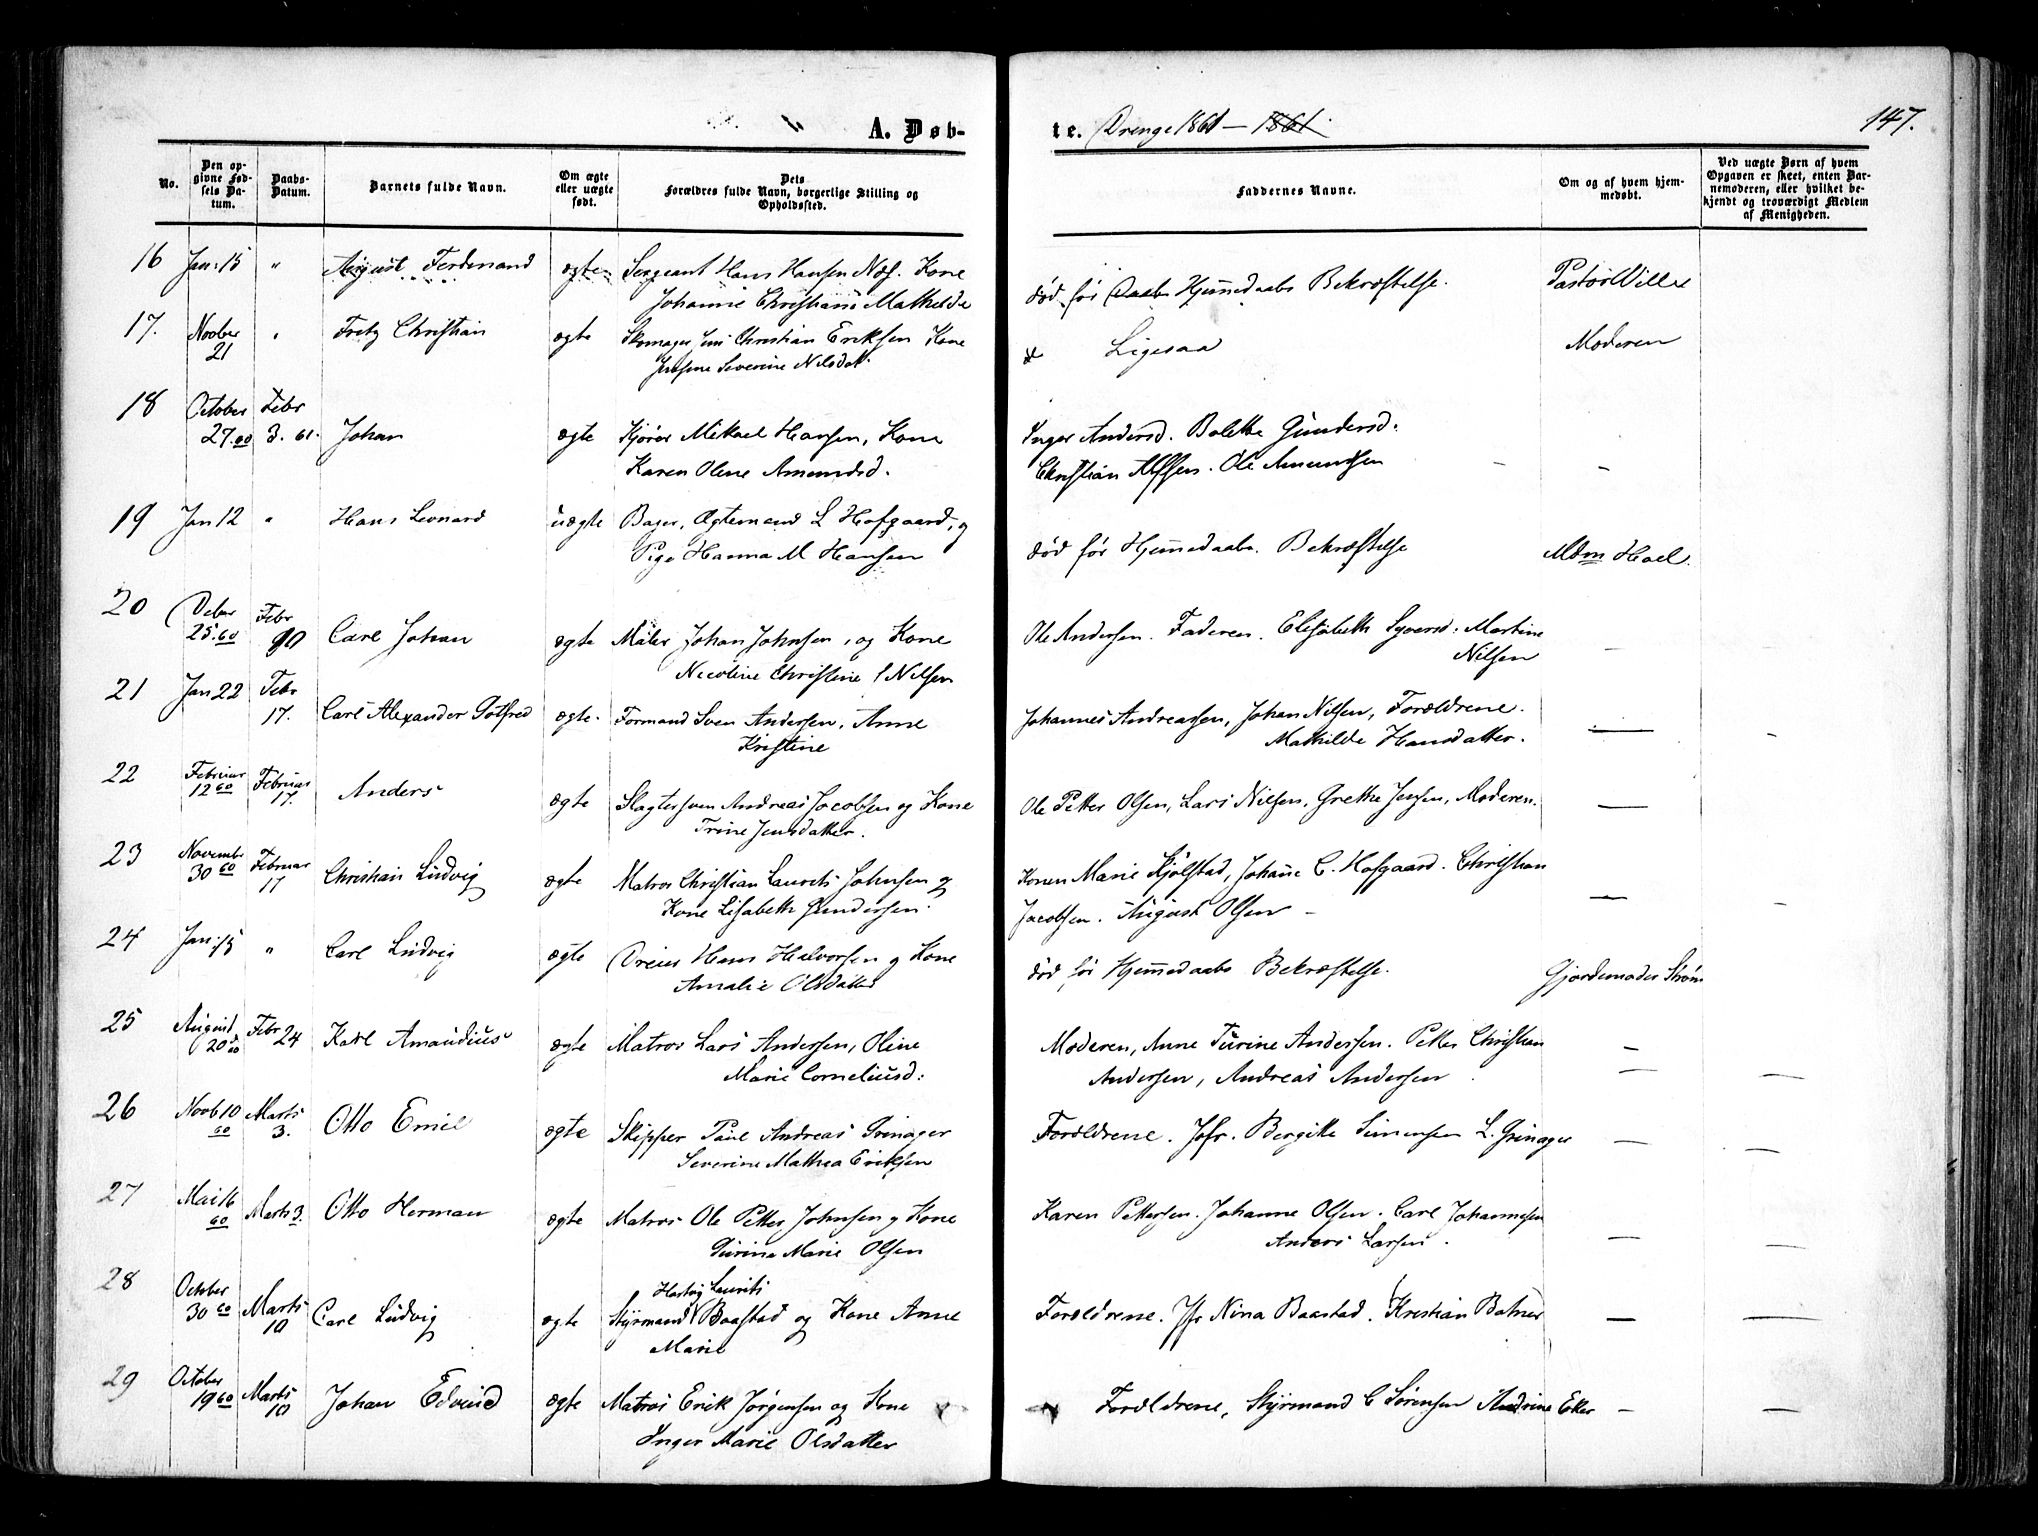 A. Døb-
te. Drenge 1861 — 1861.
147.
No.
Den op-
givne Fød-
sels Da-
tum.
Daabs-
Datum.
Barnets fulde Navn.
Om ægte
eller uægte
født.
Dets
Forældres fulde Navn, borgerlige Stilling og
Opholdssted.
Faddernes Navne.
Om og af hvem hjem-
medøbt.
Ved uægte Børn af hvem
Opgaven er skeet, enten Bar-
nemoderen, eller hvilket be-
kjendt og troværdigt Medlem
af Menigheden.
16 Jan: 15 " August Ferdinand ægte Sergeant Hans Hansen Næs. Kone
Johanne Christiane Mathilde
død før Daabs Hjemmedaabs Bekræftelse. Pastor Wille
17. Novber 21 " Fritz Christian ægte Skomager Christian Eriksen Kone
Josefine Severine Nilsdatt.
Ligesaa Moderen
18 October 27.60 Febr 3. 61. Johan ægte Kjører Mikael Hansen, Kone
Karen Oline Amundsd.
Inger Andersd. Bolette Gundersd.
Christian Alfsen. Ole Amundsen — —
19 Jan 12 " Hans Leonard uægte Bager, Ægtemand L Hofgaard, og
Pige Hanna M Hansen
død før Hjemmedaabs. Bekræftelse Mdm Hoel.
20 Debr 25.60 Febr 10 Carl Johan ægte Maler Johan Johnsen, og Kone
Nicoline Christine Nilsen
Ole Andersen. Faderen. Elisabeth Syversd. Martine
Nilsen —
21 Jan 22 Febr 17. Carl Alexander Gotfred ægte. Formand Sven Andersen, Anne
Kristine
Johannes Andreassen, Johan Nilsen, Forældrene.
Mathilde Hansdatter. — —
22 Februar 12 60 Februar 17. Anders ægte Slagtersven Andreas Jacobsen og Kone
Trine Jensdatter.
Ole Petter Olsen, Lars Nilsen, Grethe Jensen, Moderen. —
23 Novembr 30 60 Februar 17 Christian Ludvig ægte Matros Christian Laurits Johnsen og
Kone Lisabeth Gundersen.
Konen Marie Kjølstad, Johanne C. Hofgaard. Christian
Jacobsen. August Olsen — — —
24 Jan: 15 " Carl Ludvig ægte Dreier Hans Halvorsen og Kone
Amalie Olsdatter
død før Hjemmedaabs Bekræftelse. Gjordemoder Strøm
25 August 20 60 Febr 24 Karl Amandius ægte Matros Lars Andersen, Oline
Marie Corneliusd:
Moderen, Anne Turine Andersen. Petter Christian —
Andersen, Andreas Andersen. — —
26 Novb 10 60 Marts 3. Otto Emil ægte Skipper Paul Andreas Grinager
Severine Mathea Eriksen
Forældrene. Jfr. Bergitte Simensen L. Grinager — —
27 Mai 16 60 Marts 3. Otto Herman ægte Matros Ole Petter Johnsen og Kone
Gurine Marie Olsen
Karen Pettersen. Johanne Olsen. Carl Johannesen
Anders Larsen. — —
28 October 30 60 Marts 10 Carl Ludvig ægte Hartvig Laurits
Styrmand Baastad og Kone Anne
Marie
Forældrene. Jfr Nina Baastad. Kristian Botner — —
29 October 19 60 Marts 10 Johan Edvind ægte Matros Erik Jørgensen og Kone
Inger Marie Olsdatter
Forældrene, Styrmand C Sørensen Andrine Eller — —